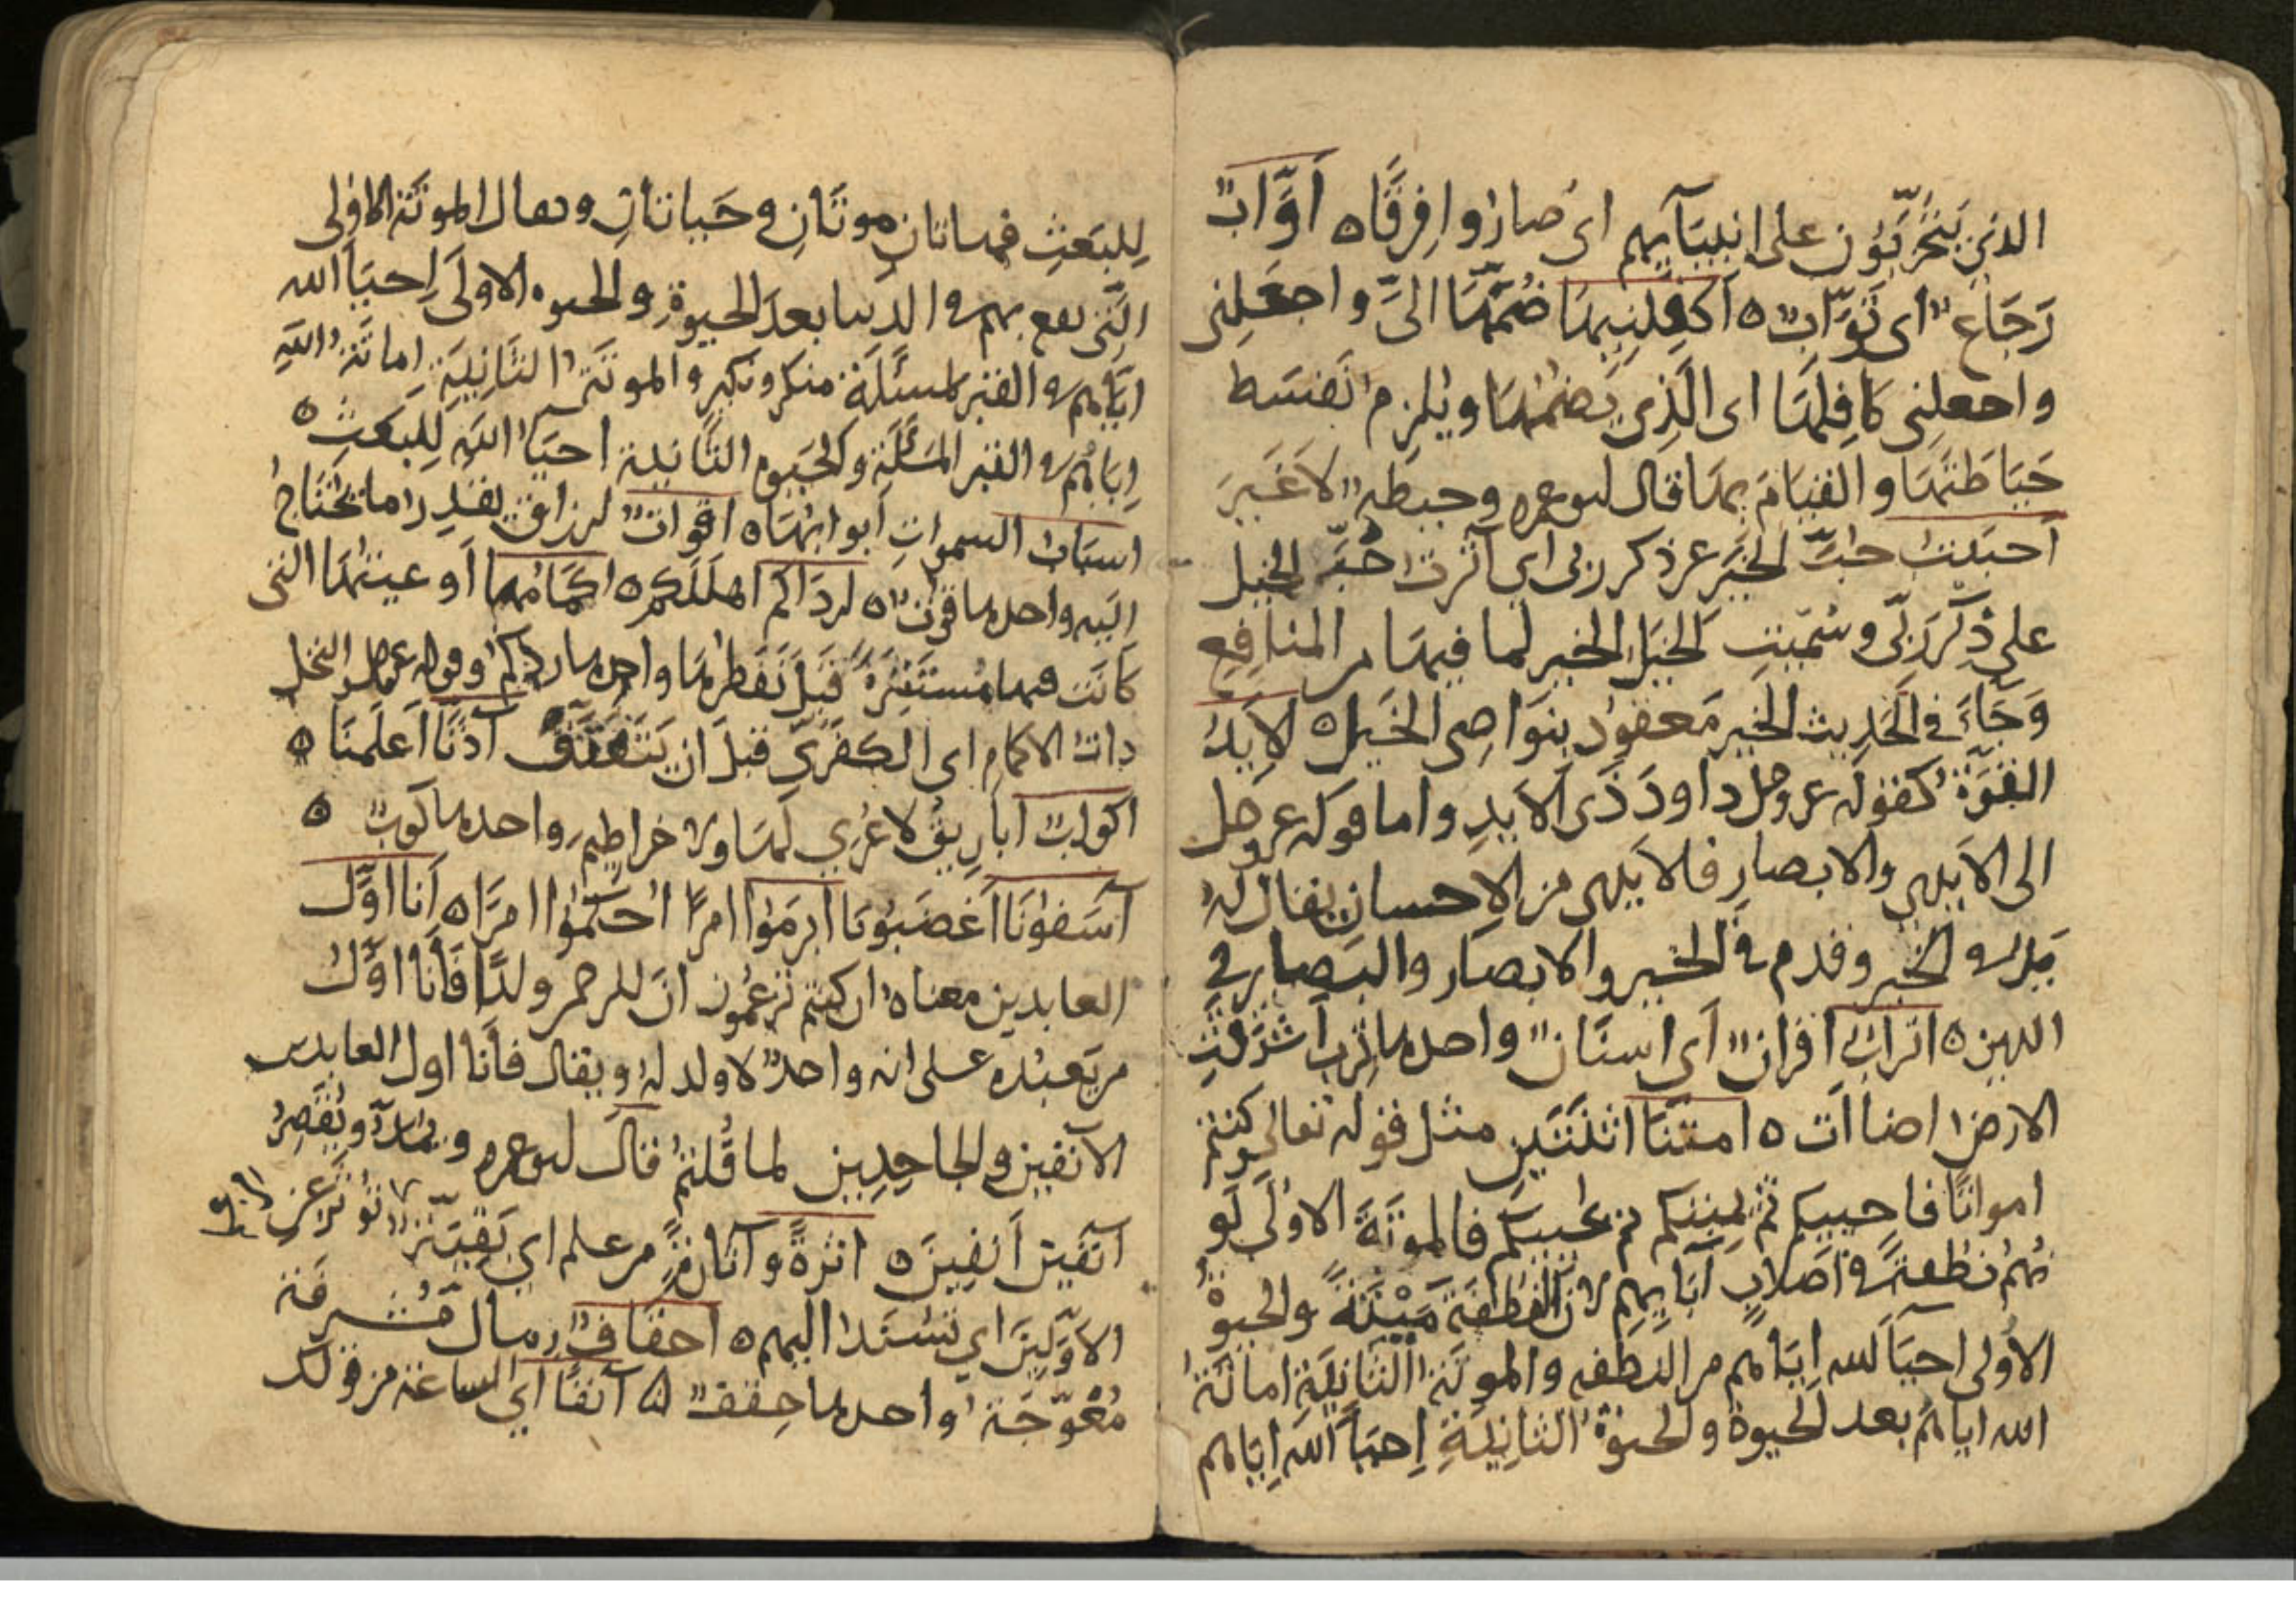 الذين يتحزّبون على انبيآيهم اى صاروا فِرقًا ٥ أوّاب
رَجّاع اى توّاب ٥ اكفلنيها ضُمّها الىّ واجعلنى
واجعلنى كافلها اى الّذى يضمّها ويلزم نفسه
حياطتها والقيام بها قال ابو عمر وحيطه لا غير
أحببت حبّ الخير عن ذكر ربى اي آثرت حُبّ الخيل
على ذكر ربّى وسُمّيت الخيل الخير لما فيها من المنافع
وجَآءَ في الحديث الخير معقود بنواصى الخيل ٥ الايد
القوّة كقوله عز وجل داود ذى الايد واما قوله عز وجل
اولى الايدى والابصار فالايدى من الاحسان يقال له
يد فى الخير وقدم في الخير والابصار والبصاير فى
الدين ٥ اتراب أقران أي اسنان واحدها ترب أشرقت
الارض اضاأت ٥ امتّنا اثنتين مثل قوله تعالى وكنتم
امواتًا فاحييكم ثم يميتكم ثم يحييكم فالموتة الاولى كو
نهم نطفة فى اصلاب آبايهم لان النطفة ميْتة والحيوة
الاولى احيآ الله اياهم من النطفه والموتة الثانية اماتة
الله اياهم بعد الحيوة والحيوة الثانية إحيآ الله اياهم
للبَعثِ فهاتان موتتان وحياتان ويقال الموتة الاولى
التى تقع بهم فى الدنيا بعد الحيوة والحيوه الاولى إحيآ الله
اياهم فى القبر لمسئلة منكر ونكير والموتة الثانية إماتة الله
إياهم فى القبر المسئلة والحيوه الثانية احيآ الله للبعث ٥
اسباب السموات أبوابها ٥ اقوات ارزاق بقدر ما يحتاج
اليه واحدها قوت ٥ ارداكم اهلككم ٥ اكمامها أوعيتها التى
كانت فيها مُستترة قبل تفطرها واحدها كم وقوله عز وجل والنخل
ذات الاكمام اى الكفرّى قبل ان يتفتّق آذنّا أعلمنا ٥
اكواب أباريق لا عُرى لها ولا خراطيم واحدها كوب ٥
آسفونا أغضبونا ابرموا امرًا احكموا امرًا ٥ أنا اوّل
العابدين معناه ان كنتم تزعمون ان للرحمن ولدًا فأنا اوّل
من يعبده على انه واحدٌ لا ولد له ويقال فأنا اول العابدين
الآنفين والجاحدين لما قلتم قال ابو عمر ويُمدّ ويُقصر
آنفين أنفين ٥ اثرة وآثارة من علم اي بقيّة تؤثر عن
الأوّلين اي تُسند اليهم ٥ احقاف رمال مُشرفة
مُعْوجّة واحدها حِقف ٥ آنفًا أي الساعة من قولك